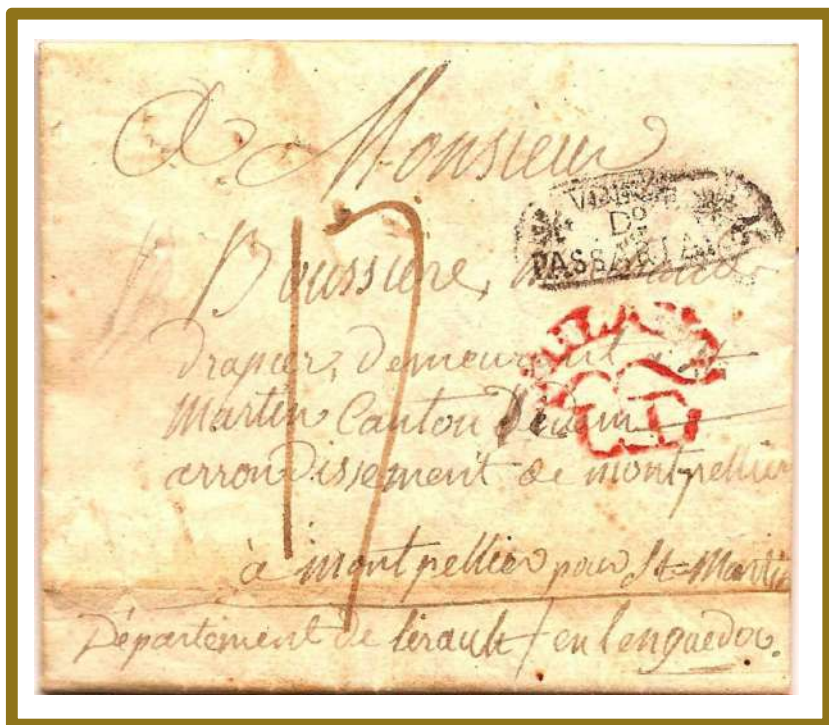 A Monsieur
17
D.o
PASSARIANO
Boussiere,
drapier, demeurant a St
Martin Canton
arrondissement de montpellier
à montpellier pour St=Martin
Département de lérault / en lenguedoc.